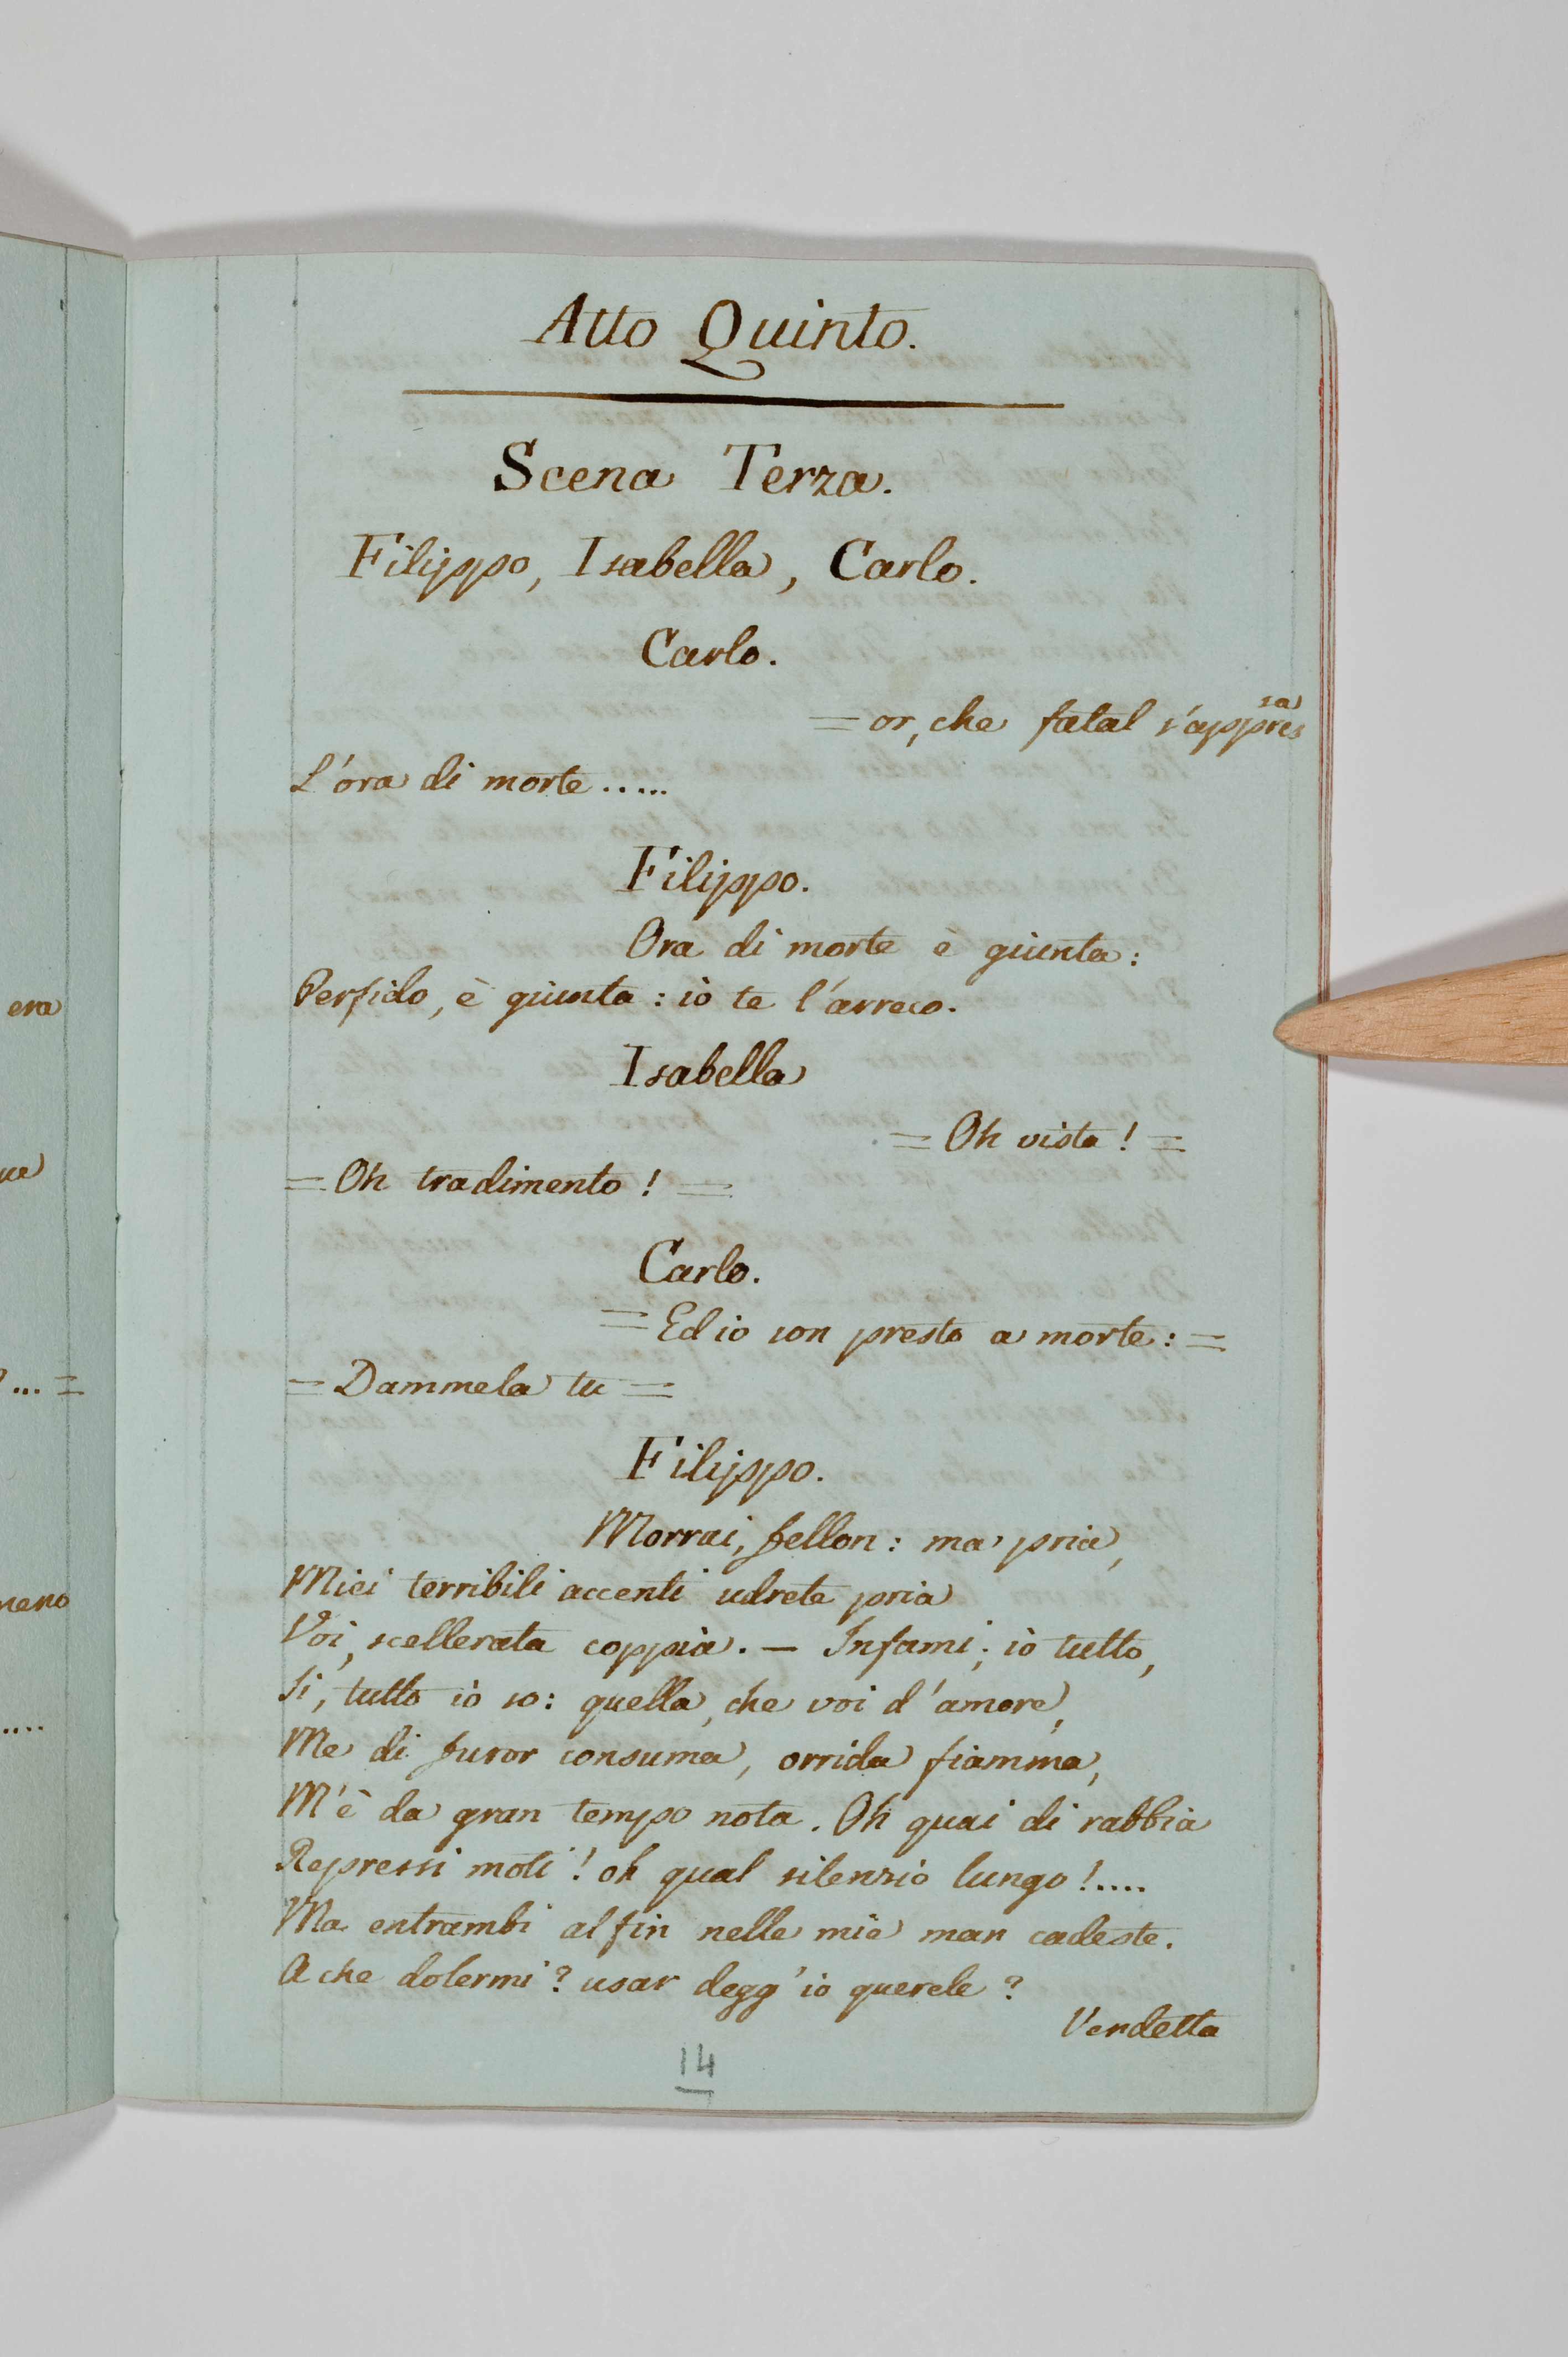 Atto Quinto.
Scena Terza.
Filippo, Isabella, Carlo.
Carlo.
= or, che fatal s'appressa
L'ora di morte.....
Filippo.
Ora di morte è giunta:
Perfido, è giunta: io te l'arreco.
Isabella
= Oh vista! =
= Oh tradimento! =
Carlo.
= Ed io son presto a morte: =
= Dammela tu =
Filippo.
Morrai, fellon: ma pria,
Miei terribili accenti udrete pria
Voi, scellerata coppia. — Infami; io tutto,
Si, tutto io so: quella, che voi d'amore,
Me di furor consuma, orrida fiamma,
M'è da gran tempo nota. Oh quai di rabbia
Repressi moti! oh qual silenzio lungo!....
Ma entrambi al fin nelle mie man cadeste.
A che dolermi? usar degg'io querele?
Vendetta
14
era
...=
....